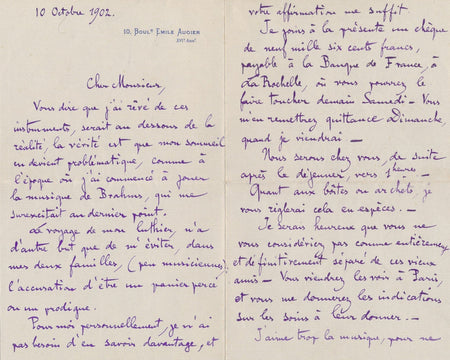 10 Octobre 1902.
10, Boulᵈ Emile Augier
XVIᵉ Arrᵗ
Cher Monsieur,
Vous dire que j'ai rêvé de ces
instruments, serait au dessous de la
réalité, la vérité est que mon sommeil
en devient problématique, comme à
l'époque où j'ai commencé à jouer
la musique de Brahms, qui me
surexcitait au dernier point.
Le voyage de mon luthier, n'a
d'autre but que de m'éviter, dans
mes deux familles, (peu musiciennes)
l'accusation d'être un panier percé
ou un prodigue.
Pour moi personnellement, je n'ai
pas besoin d'en savoir davantage, et
votre affirmation me suffit.
Je joins à la présente un chèque
de neuf mille six cent francs,
payable à la Banque de France, à
La Rochelle, où vous pourrez le
faire toucher demain Samedi – Vous
m'en remettrez quittance Dimanche,
quand je viendrai –
Nous serons chez vous, de suite
après le déjeuner, vers 1 heure –
Quant aux boîtes ou archets, je
vous règlerai cela en espèces. –
Je serais heureux que vous ne
vous considériez pas comme entièrement
et définitivement séparé de ces vieux
amis – Vous viendrez les voir à Paris,
et vous me donnerez les indications
sur les soins à leur donner. –
J'aime trop la musique, pour ne